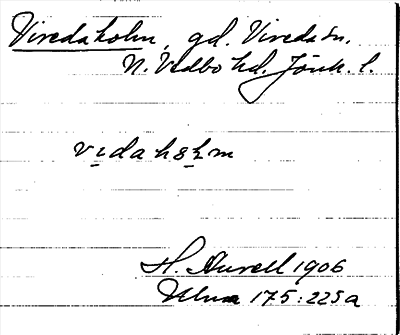 Viredaholm, gd. Vireda sn.
N. Vedbo hd. Jönk. l.
vıdahȯlm
H. Aurell 1906
175:225a